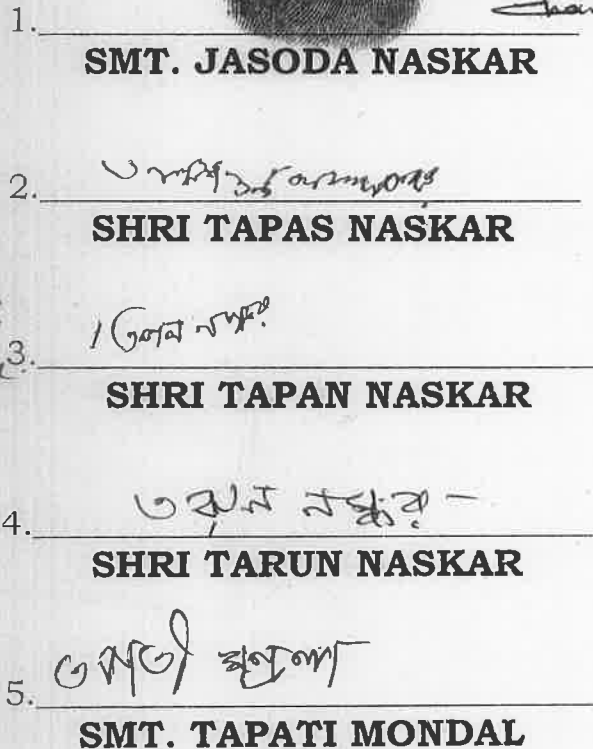 1.
SMT. JASODA NASKAR
2.
SHRI TAPAS NASKAR
তপন নস্কর
3.
SHRI TAPAN NASKAR
তরুন নস্কর
4.
SHRI TARUN NASKAR
তপতী মন্ডল
5.
SMT. TAPATI MONDAL